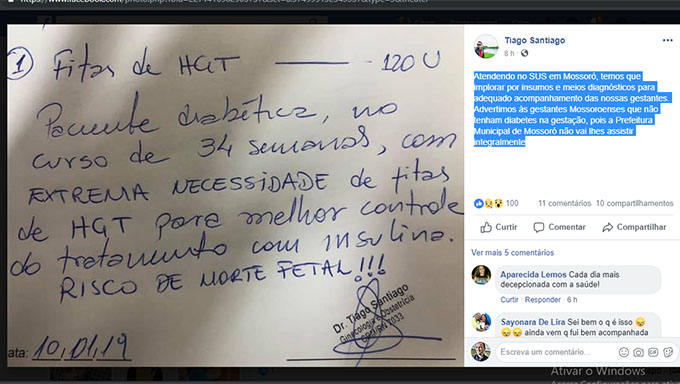 ① Fitas de HGT —— 120 U
Paciente diabética, no
curso de 34 semanas, com
EXTREMA NECESSIDADE de fitas
de HGT para melhor controle
do tratamento com insulina.
RISCO DE MORTE FETAL!!!
Dr. Tiago Santiago
Ginecologia e Obstetrícia
ata: 10,01,19
Tiago Santiago
8 h
Atendendo no SUS em Mossoró, temos que
implorar por insumos e meios diagnósticos para
adequado acompanhamento das nossas gestantes.
Advertimos às gestantes Mossoroenses que não
tenham diabetes na gestação, pois a Prefeitura
Municipal de Mossoró não vai lhes assistir
integralmente
100
11 comentários 10 compartilhamentos
Curtir Comentar Compartilhar
Ver mais 5 comentários
Aparecida Lemos Cada dia mais
decepcionada com a saúde!
Curtir · Responder · 6 h
Sayonara De Lira Sei bem o q é isso
ainda vem q fui bem acompanhada
Escreva um comentário...
Ativar o Windows